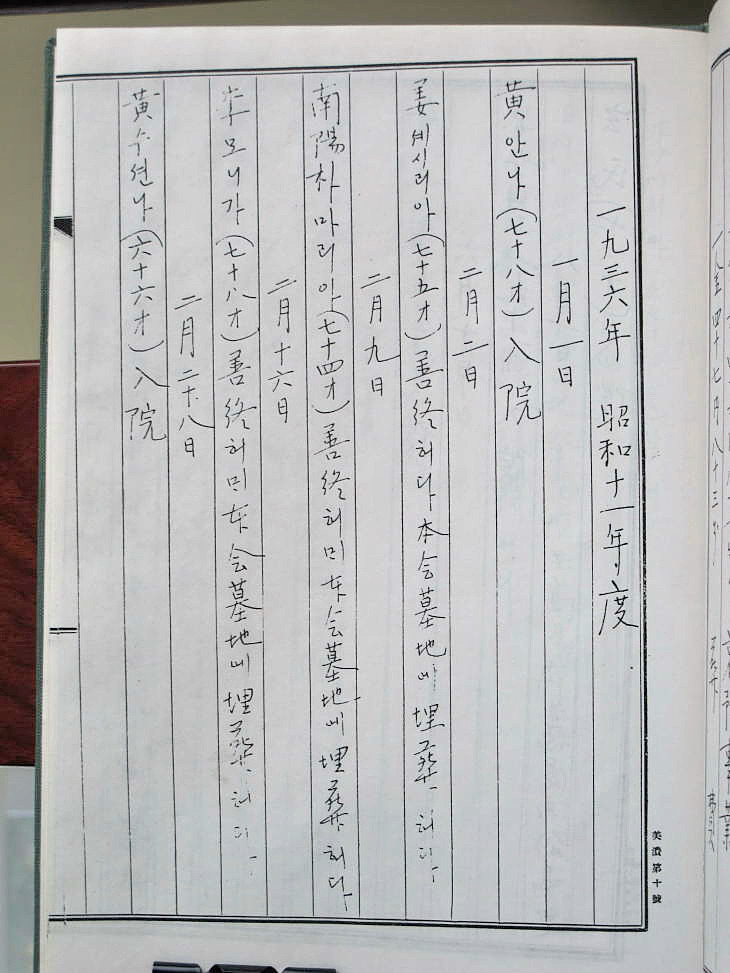 一九三六年 昭和十一年度
一月一日
黄안나(七十八才)入院
二月二日
姜세시리아(七十五才)善終하다 本会墓地에 埋葬하다
二月九日
南陽朴마리아(七十四才)善終하미 本会墓地에 埋葬하다
二月十六日
李모니가(七十八才)善終하미 本会墓地에 埋葬하다
二月二十八日
黄수산나(六十六才)入院
美濃第十號